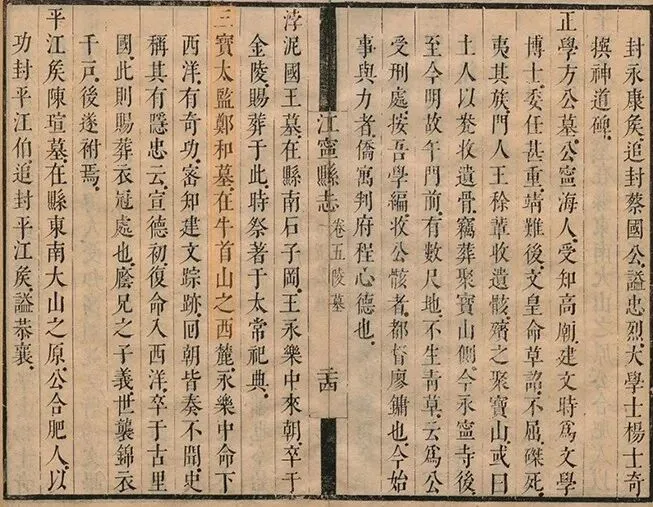 封永康矦追封蔡國公謚忠烈大學士楊士奇
撰神道碑
正學方公墓公寧海人受知高廟建文時爲文學
博士委任甚重靖難後文皇命草詔不屈磔死
夷其族門人王稌輩收遺骸殯之聚寶山或曰
土人以甃收遺骨竊葬聚寶山側今永寧寺後
至今明故午門前有數尺地不生靑草云爲公
受刑處按吾學編收公骸者都督廖鏞也今始
事與力者僑寓判府程心德也
江寧縣志
卷五陵墓
二十四
浡泥國王墓在縣南石子岡王永樂中來朝卒于
金陵賜葬于此時祭著于太常祀典
三寶太監鄭和墓在牛首山之西麓永樂中命下
西洋有奇功密知建文踪跡回朝皆奏不聞史
稱其有隱忠云宣德初復命入西洋卒于古里
國此則賜葬衣冠處也廕兄之子義世襲錦衣
千戶後遂祔焉
平江矦陳瑄墓在縣東南大山之原公合肥人以
功封平江伯追封平江矦謚恭襄